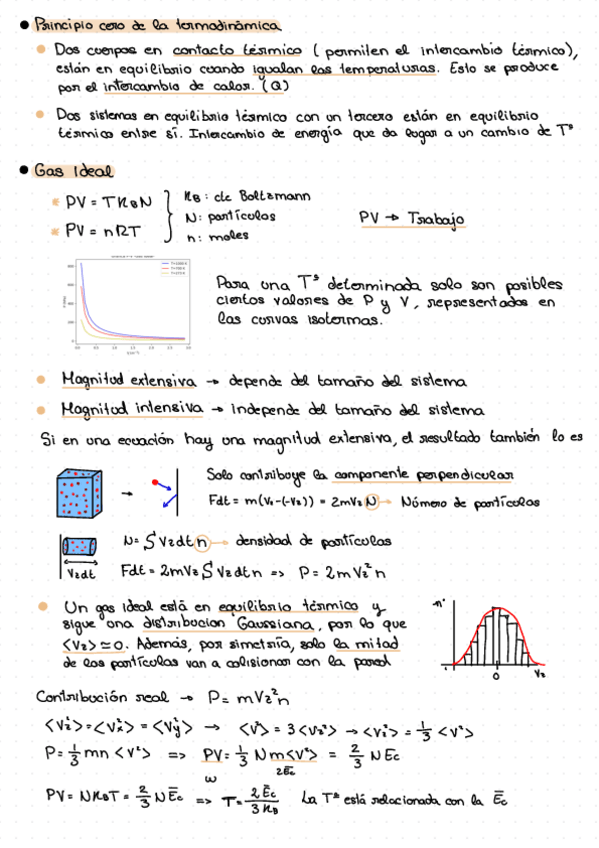 • Principio cero de la termodinámica
• Dos cuerpos en contacto térmico (permiten el intercambio térmico),
están en equilibrio cuando igualan las temperaturas. Esto se produce
por el intercambio de calor. (Q)
• Dos sistemas en equilibrio térmico con un tercero están en equilibrio
térmico entre sí. Intercambio de energía que da lugar a un cambio de Tª
• Gas Ideal
* PV = TKBN
* PV = nRT
KB: cte Boltzmann
N: partículas
n: moles
PV → Trabajo
Para una Tª determinada solo son posibles
ciertos valores de P y V, representados en
las curvas isotermas.
• Magnitud extensiva → depende del tamaño del sistema
• Magnitud intensiva → independe del tamaño del sistema
Si en una ecuación hay una magnitud extensiva, el resultado también lo es
Solo contribuye la componente perpendicular
Fdt = m(Vz-(-Vz)) = 2mVz N → Número de partículas
N = S Vzdt n → densidad de partículas
Vzdt
Fdt = 2mVz S Vzdt n => P = 2mVz²n
• Un gas ideal está en equilibrio térmico y
sigue una distribucion Gaussiana, por lo que
<Vz> ≃ 0. Además, por simetría, solo la mitad
de las partículas van a colisionar con la pared
0
Vz
Contribución real → P = mVz²n
<Vz²> = <Vx²> = <Vy²> → <V²> = 3<Vz²> → <Vz²> = 1/3 <V²>
P = 1/3 mn <V²> => PV = 1/3 N m<V²> = 2/3 N Ec
2Ec
PV = NKBT = 2/3 N Ec => T = 2Ec/3KB La Tª está relacionada con la Ec